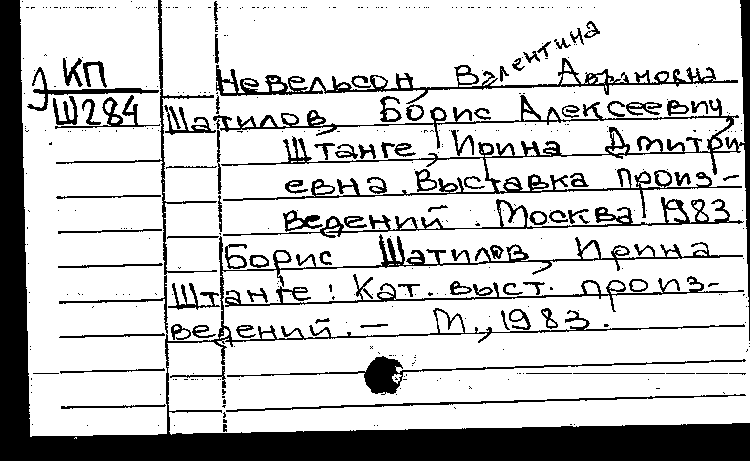 КП
Ш284
Невельсон, Валентина Аврамовна
Шатилов, Борис Алексеевич,
Штанге, Ирина Дмитри-
евна. Выставка произ-
ведений. Москва, 1983
Борис Шатилов, Ирина
Штанге: Кат. выст. произ-
ведений. — М., 1983.